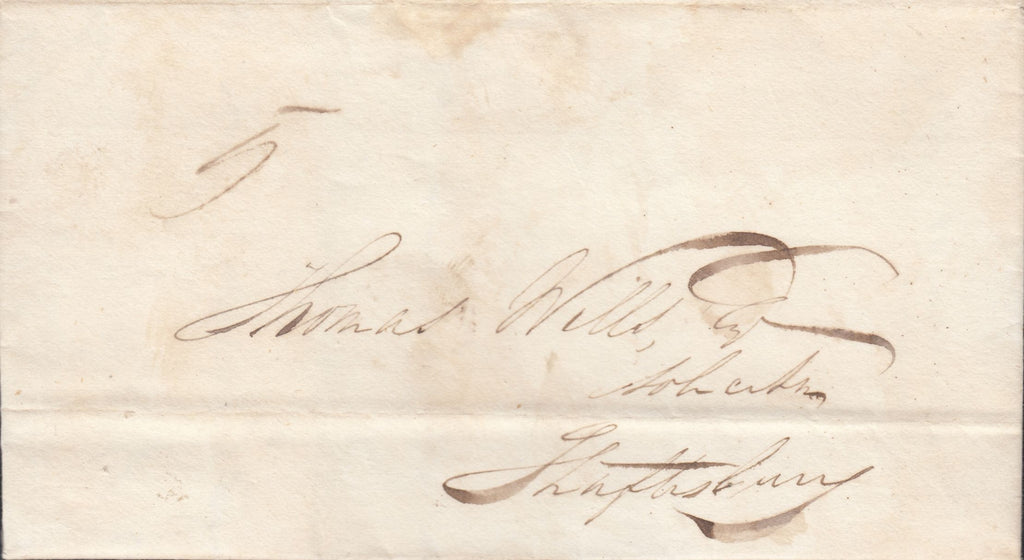 5
Thomas Wills, Esq
Solicitor
Shaftsbury